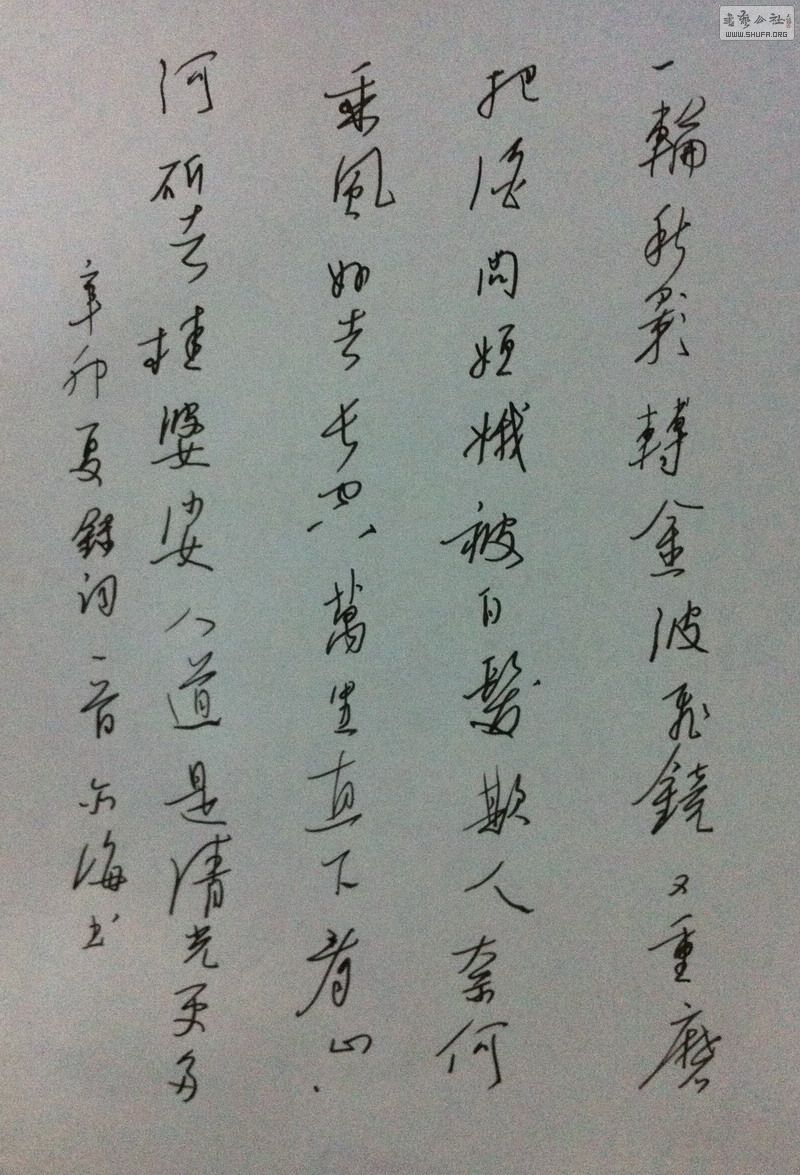 一輪秋影轉金波飛鏡又重磨
把酒問姮娥被白髮欺人奈何
乘風好去長空萬里直下看山
河斫去桂婆娑人道是清光更多
辛卯夏錄詞一首 海書
書藝公社
WWW.SHUFA.ORG